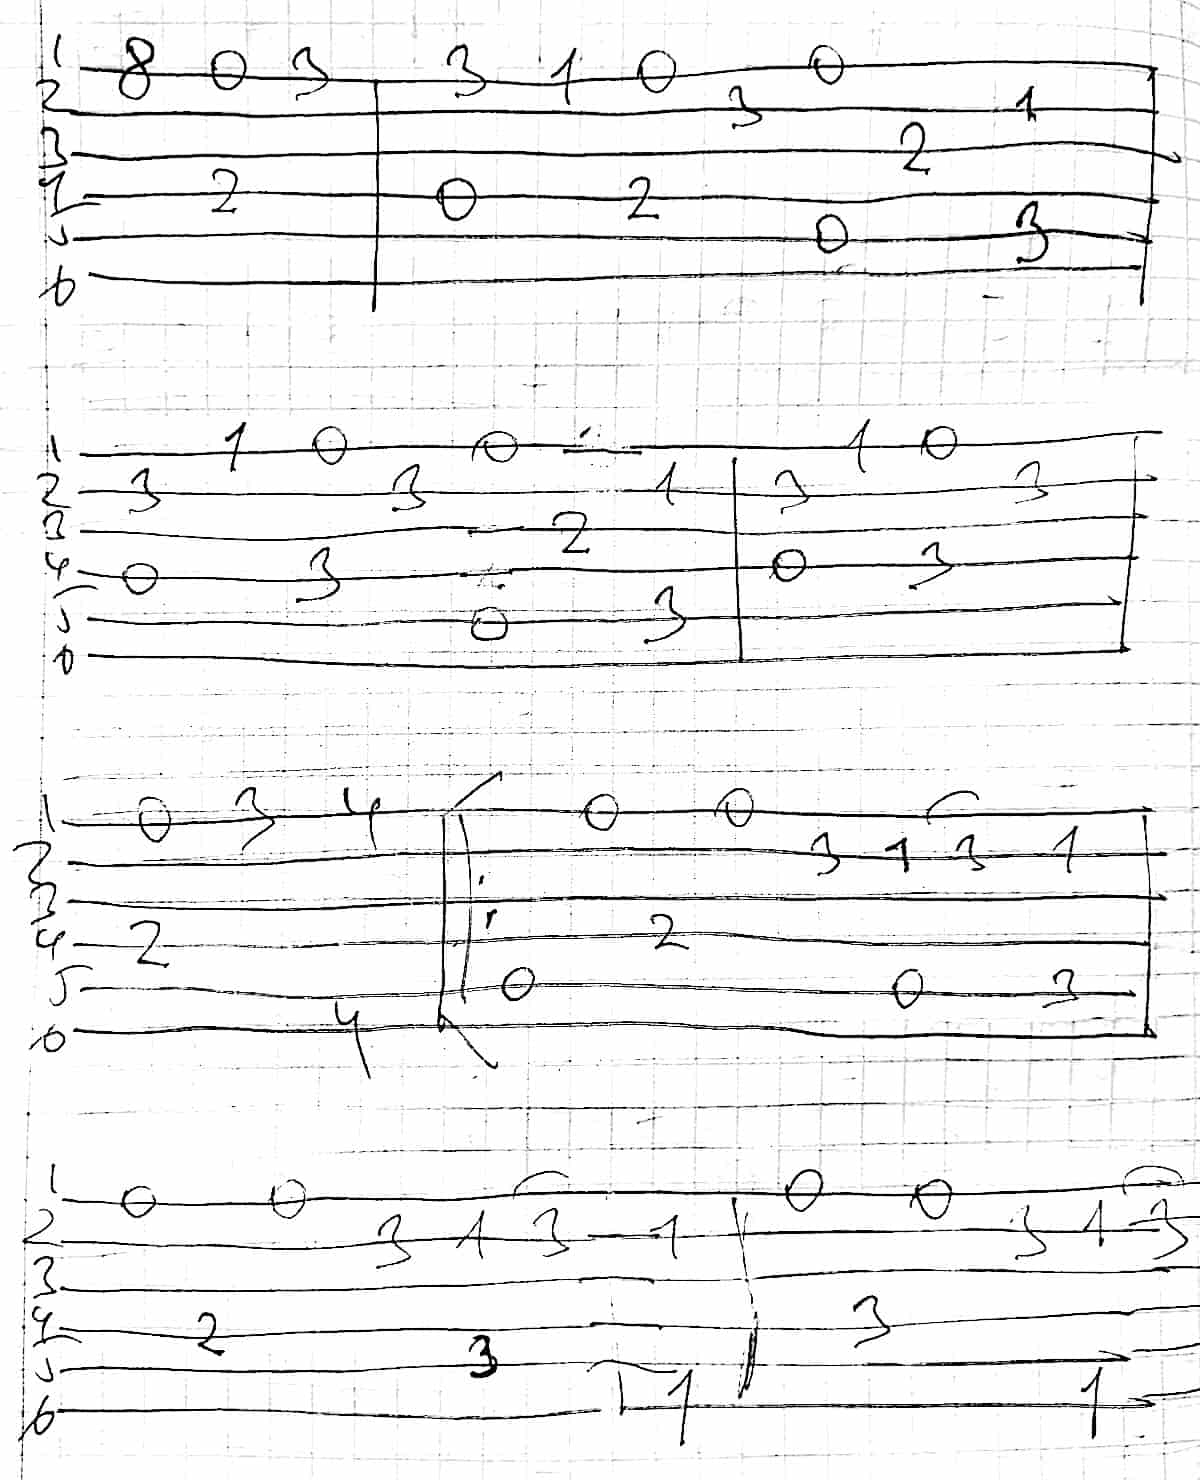 1 8 0 3 3 1 0 0
2 3 1
3 2
4 2 0 2
5 0 3
6
1 1 0 0 1 0
2 3 3 1 3 3
3 2
4 0 3 0 3
5 0 3
6
1 0 3 4 0 0
2 3 1 3 1
3
4 2 2
5 0 0 3
6 4
1 0 0 0 0
2 3 1 3 1 3 1 3
3
4 2 3
5 3
6 1 1